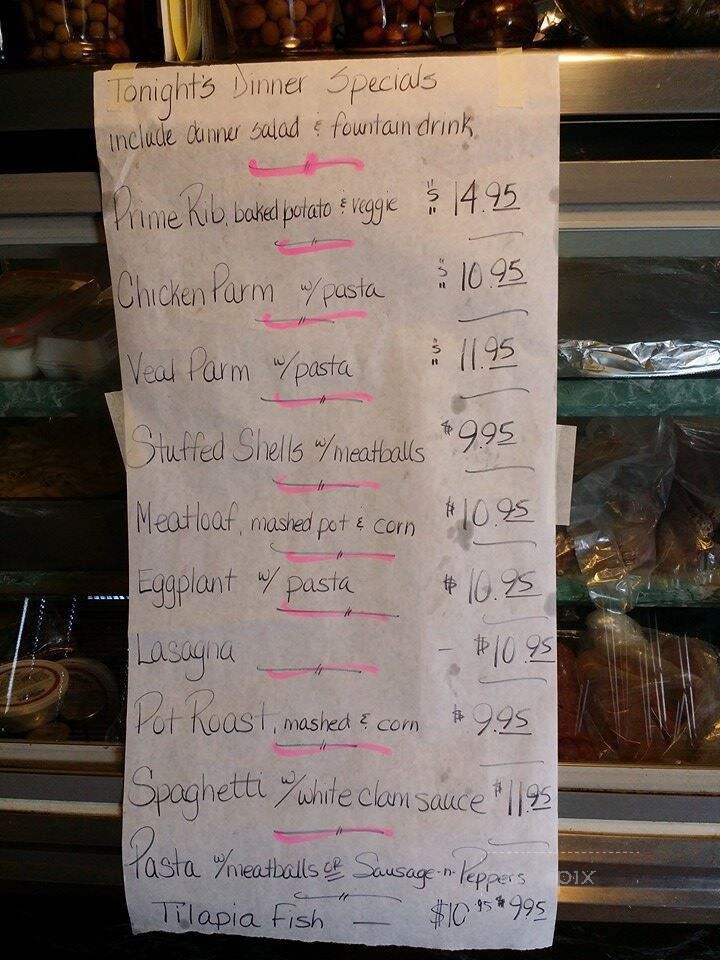 Tonight's Dinner Specials
include dinner salad & fountain drink
Prime Rib, baked potato & veggie $14.95
Chicken Parm w/pasta $10.95
Veal Parm w/pasta $11.95
Stuffed Shells w/meatballs $9.95
Meatloaf, mashed pot & corn $10.95
Eggplant w/ pasta $10.95
Lasagna - $10.95
Pot Roast, mashed & corn $9.95
Spaghetti w/white clam sauce $11.95
Pasta w/meatballs or Sausage-n-Peppers
Tilapia Fish — $10.95 $9.95